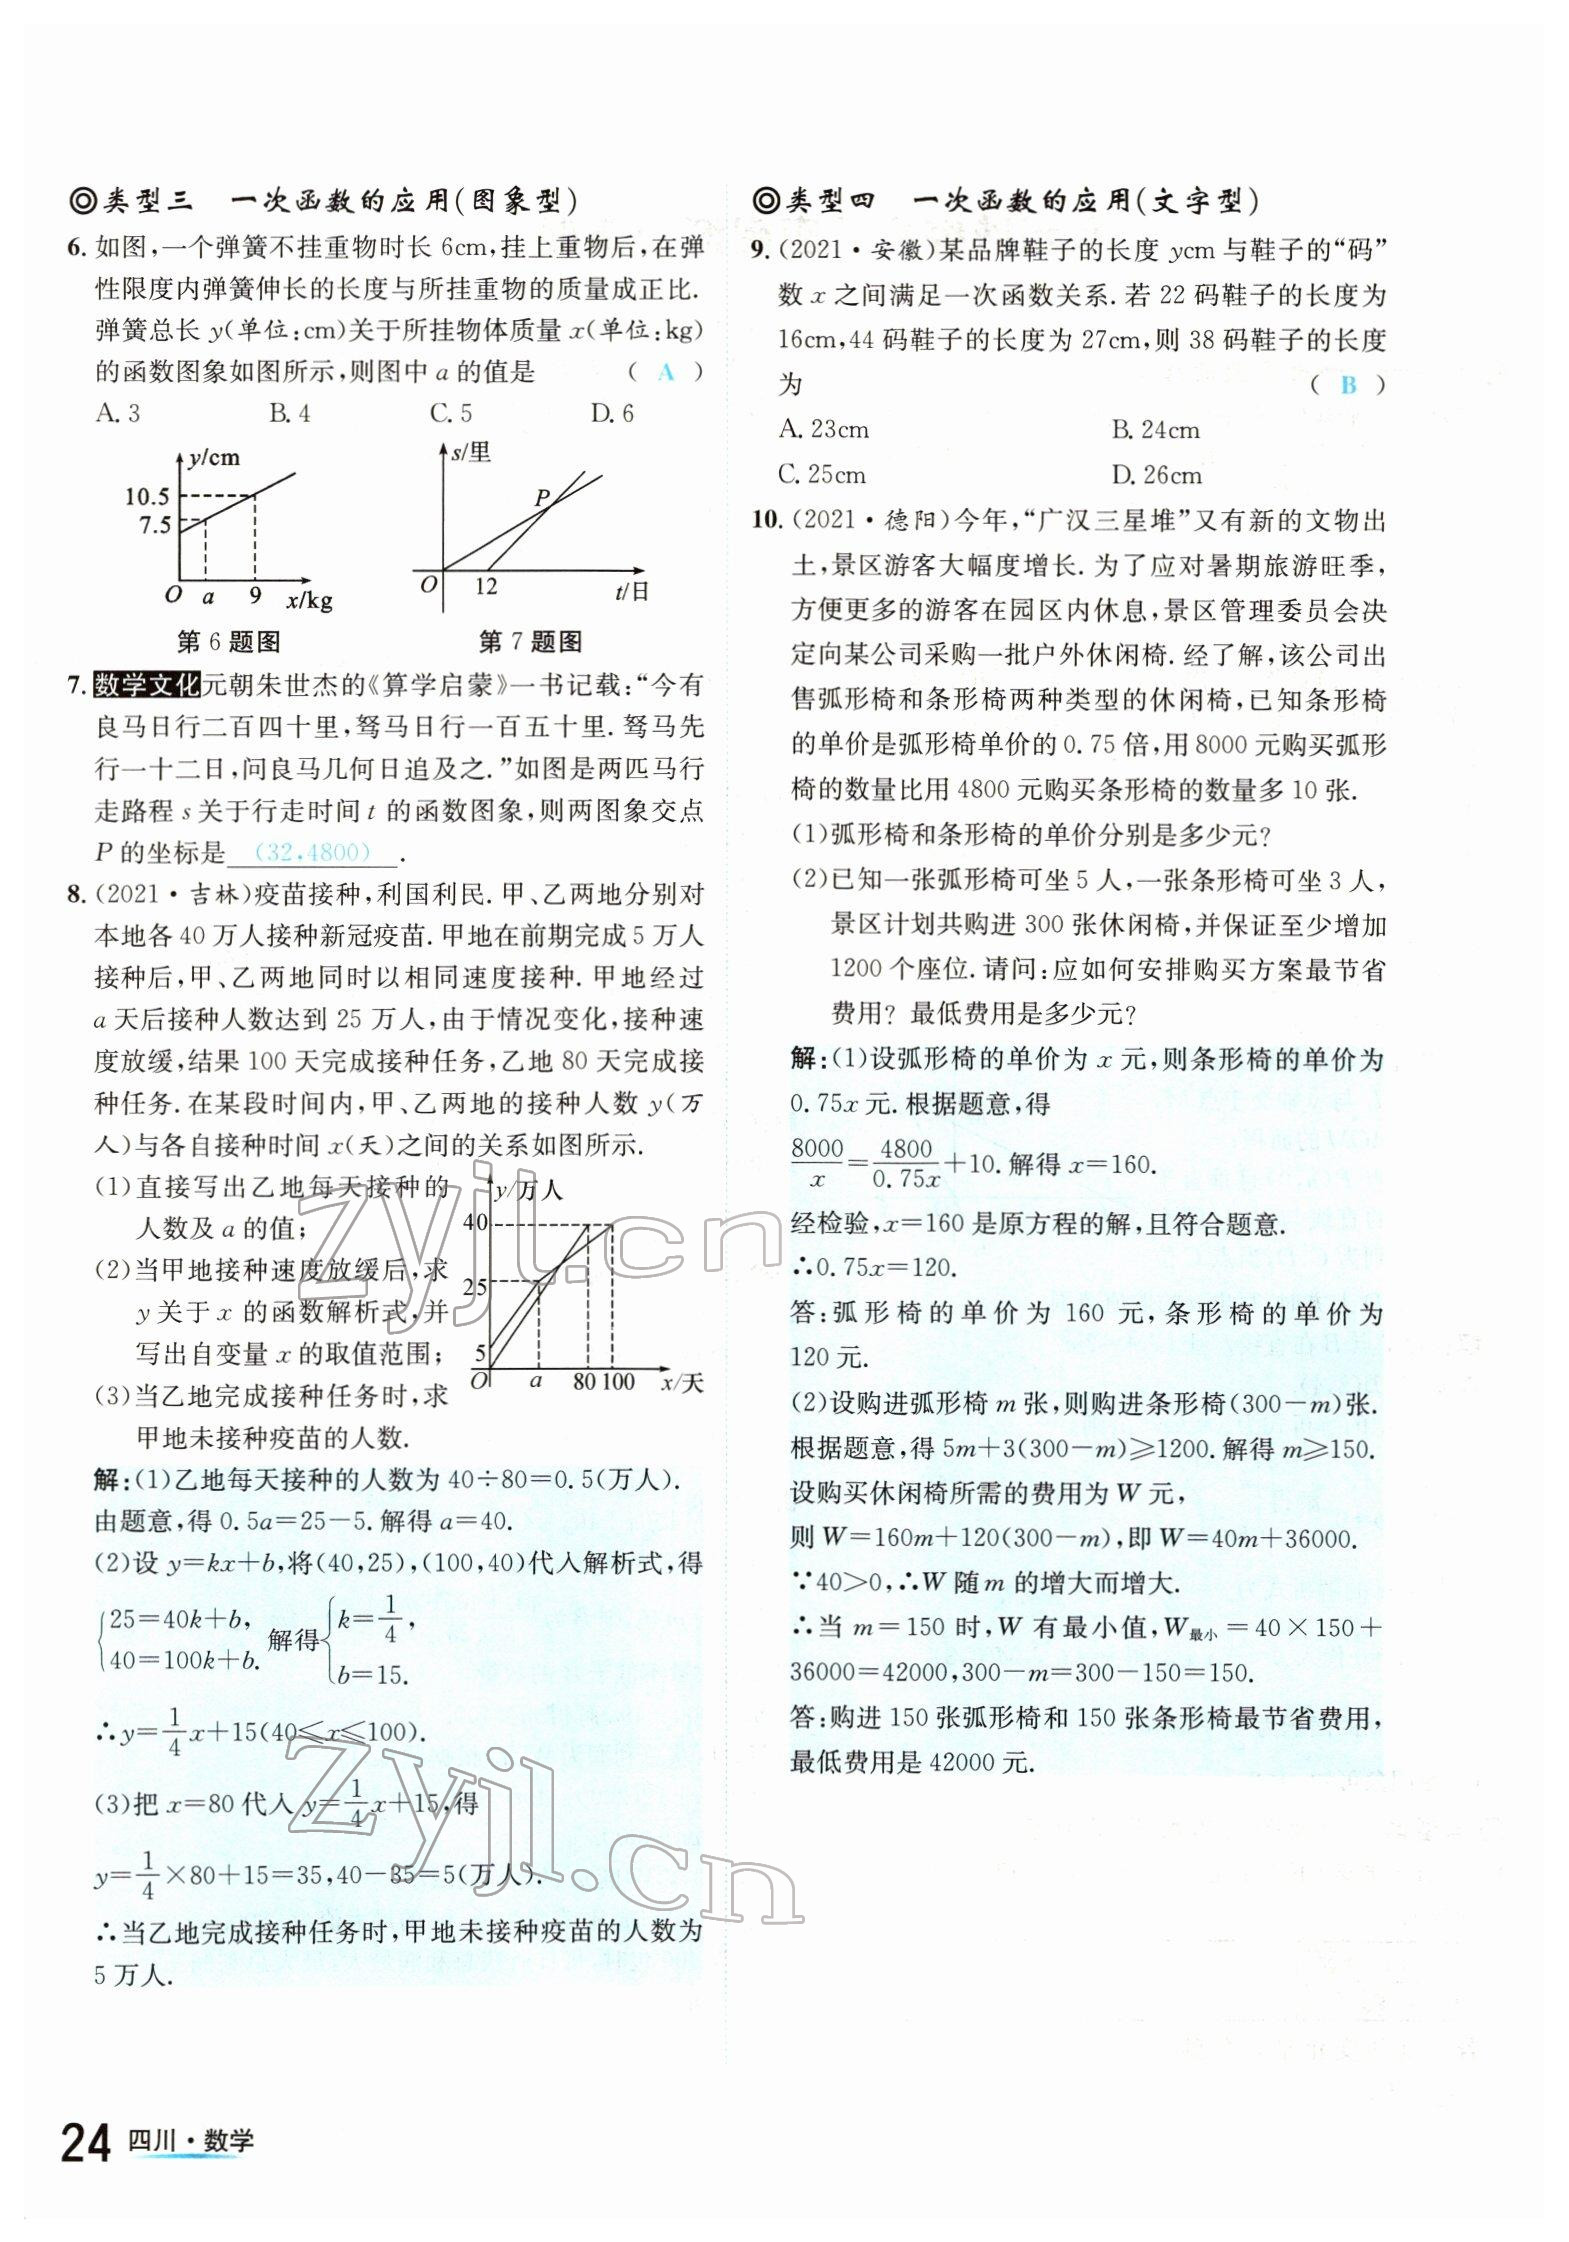 ◎类型三 一次函数的应用(图象型)
6. 如图,一个弹簧不挂重物时长 6cm,挂上重物后,在弹
性限度内弹簧伸长的长度与所挂重物的质量成正比.
弹簧总长 y(单位:cm)关于所挂物体质量 x(单位:kg)
的函数图象如图所示,则图中 a 的值是 ( A )
A. 3 B. 4 C. 5 D. 6
y/cm
10.5
7.5
O a 9 x/kg
第 6 题图
s/里
P
O 12 t/日
第 7 题图
7. 数学文化 元朝朱世杰的《算学启蒙》一书记载:“今有
良马日行二百四十里,驽马日行一百五十里. 驽马先
行一十二日,问良马几何日追及之.”如图是两匹马行
走路程 s 关于行走时间 t 的函数图象,则两图象交点
P 的坐标是 (32,4800) .
8. (2021·吉林)疫苗接种,利国利民. 甲、乙两地分别对
本地各 40 万人接种新冠疫苗. 甲地在前期完成 5 万人
接种后,甲、乙两地同时以相同速度接种. 甲地经过
a 天后接种人数达到 25 万人,由于情况变化,接种速
度放缓,结果 100 天完成接种任务,乙地 80 天完成接
种任务. 在某段时间内,甲、乙两地的接种人数 y(万
人)与各自接种时间 x(天)之间的关系如图所示.
(1)直接写出乙地每天接种的
人数及 a 的值;
(2)当甲地接种速度放缓后,求
y 关于 x 的函数解析式,并
写出自变量 x 的取值范围;
(3)当乙地完成接种任务时,求
甲地未接种疫苗的人数.
y/万人
40
25
5
O a 80 100 x/天
解:(1)乙地每天接种的人数为 40÷80=0.5(万人).
由题意,得 0.5a=25-5. 解得 a=40.
(2)设 y=kx+b,将(40,25),(100,40)代入解析式,得
{25=40k+b, 40=100k+b. 解得 {k=1/4, b=15.
∴y=1/4x+15(40≤x≤100).
(3)把 x=80 代入 y=1/4x+15,得
y=1/4×80+15=35,40-35=5(万人).
∴当乙地完成接种任务时,甲地未接种疫苗的人数为
5 万人.
zyjl.cn
zyjl.cn
24 四川·数学
◎类型四 一次函数的应用(文字型)
9. (2021·安徽)某品牌鞋子的长度 ycm 与鞋子的“码”
数 x 之间满足一次函数关系. 若 22 码鞋子的长度为
16cm,44 码鞋子的长度为 27cm,则 38 码鞋子的长度
为 ( B )
A. 23cm B. 24cm
C. 25cm D. 26cm
10. (2021·德阳)今年,“广汉三星堆”又有新的文物出
土,景区游客大幅度增长. 为了应对暑期旅游旺季,
方便更多的游客在园区内休息,景区管理委员会决
定向某公司采购一批户外休闲椅. 经了解,该公司出
售弧形椅和条形椅两种类型的休闲椅,已知条形椅
的单价是弧形椅单价的 0.75 倍,用 8000 元购买弧形
椅的数量比用 4800 元购买条形椅的数量多 10 张.
(1)弧形椅和条形椅的单价分别是多少元?
(2)已知一张弧形椅可坐 5 人,一张条形椅可坐 3 人,
景区计划共购进 300 张休闲椅,并保证至少增加
1200 个座位. 请问:应如何安排购买方案最节省
费用? 最低费用是多少元?
解:(1)设弧形椅的单价为 x 元,则条形椅的单价为
0.75x 元. 根据题意,得
8000/x=4800/0.75x+10. 解得 x=160.
经检验,x=160 是原方程的解,且符合题意.
∴0.75x=120.
答:弧形椅的单价为 160 元,条形椅的单价为
120 元.
(2)设购进弧形椅 m 张,则购进条形椅(300-m)张.
根据题意,得 5m+3(300-m)≥1200. 解得 m≥150.
设购买休闲椅所需的费用为 W 元,
则 W=160m+120(300-m),即 W=40m+36000.
∵40>0,∴W 随 m 的增大而增大.
∴当 m=150 时,W 有最小值,W最小=40×150+
36000=42000,300-m=300-150=150.
答:购进 150 张弧形椅和 150 张条形椅最节省费用,
最低费用是 42000 元.